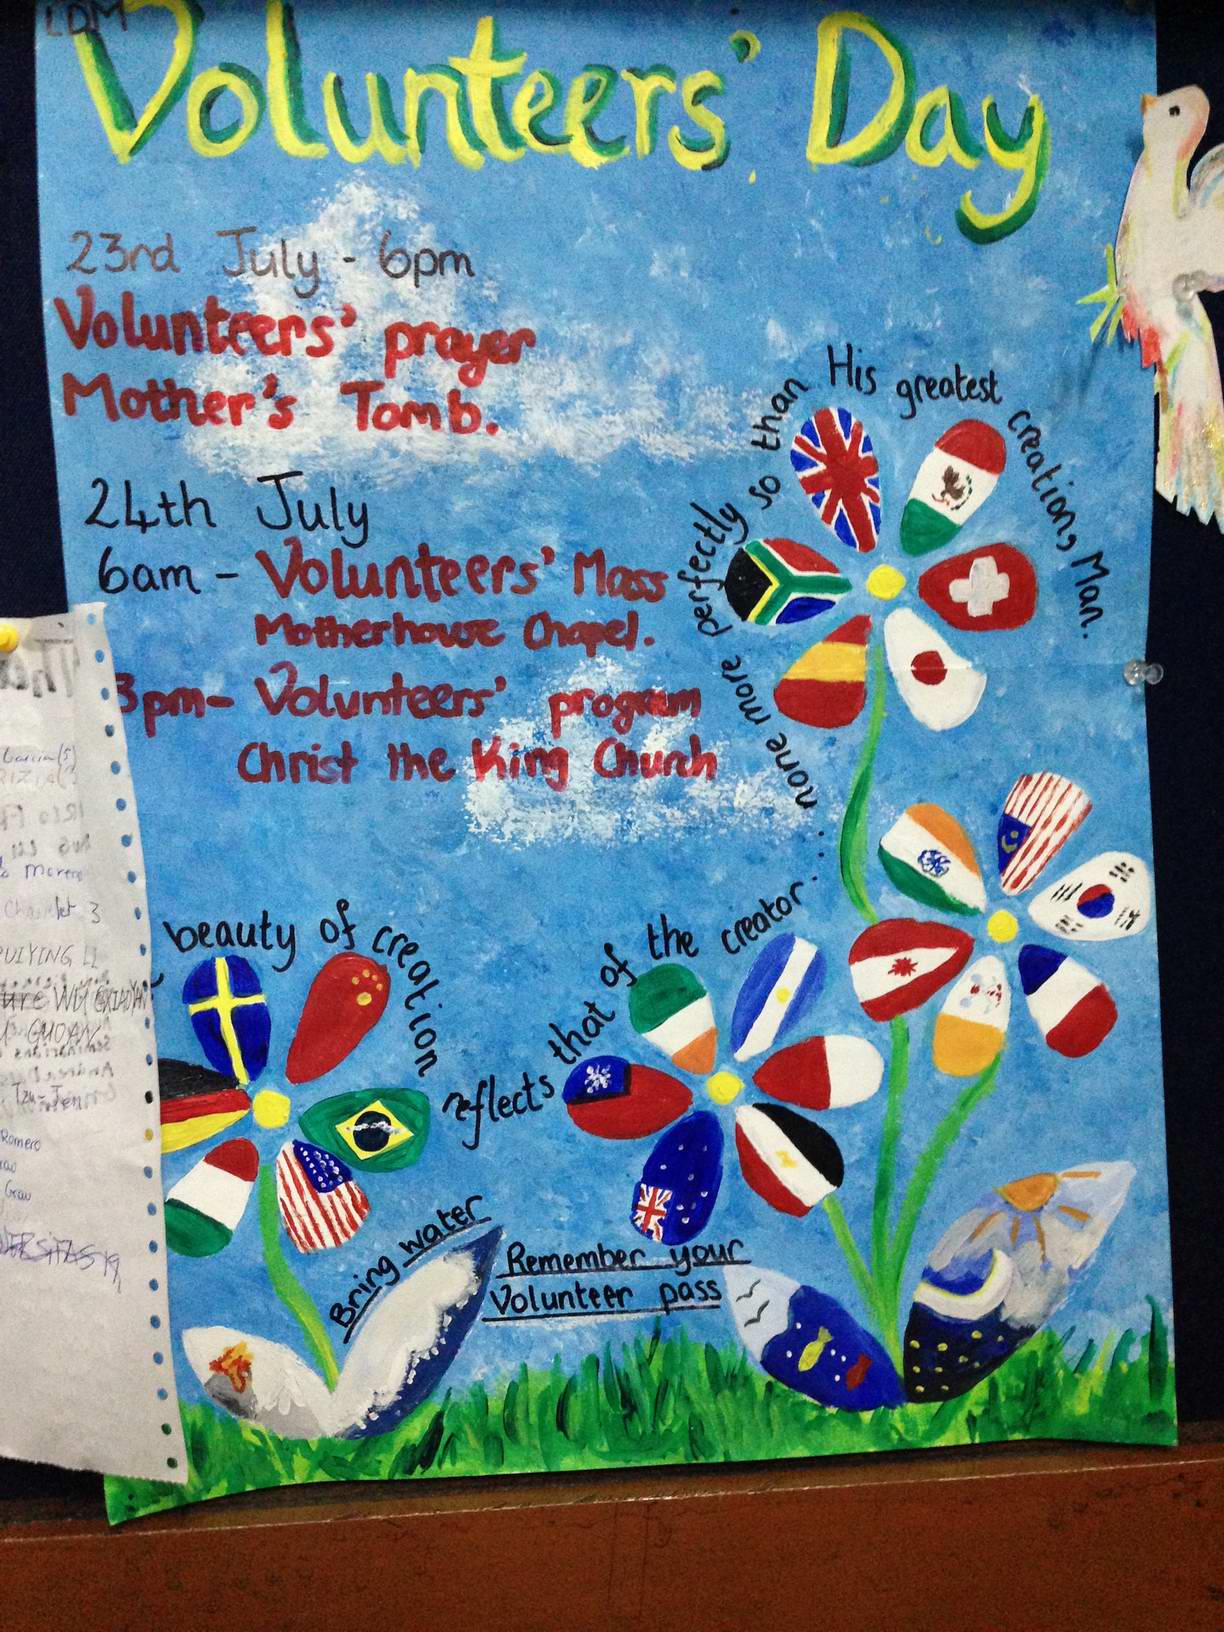 LDM
Volunteers' Day
23rd July - 6pm
Volunteers' prayer
Mother's Tomb.
24th July
6am - Volunteers' Mass
Motherhouse Chapel.
3pm - Volunteers' program
Christ the King Church
beauty of creation
reflects that of the creator...
none more perfectly so than His greatest creation, Man.
Bring water
Remember your
Volunteer pass
Garcia(S)
Moreno
3
RUIYING LI
Romero
Grau